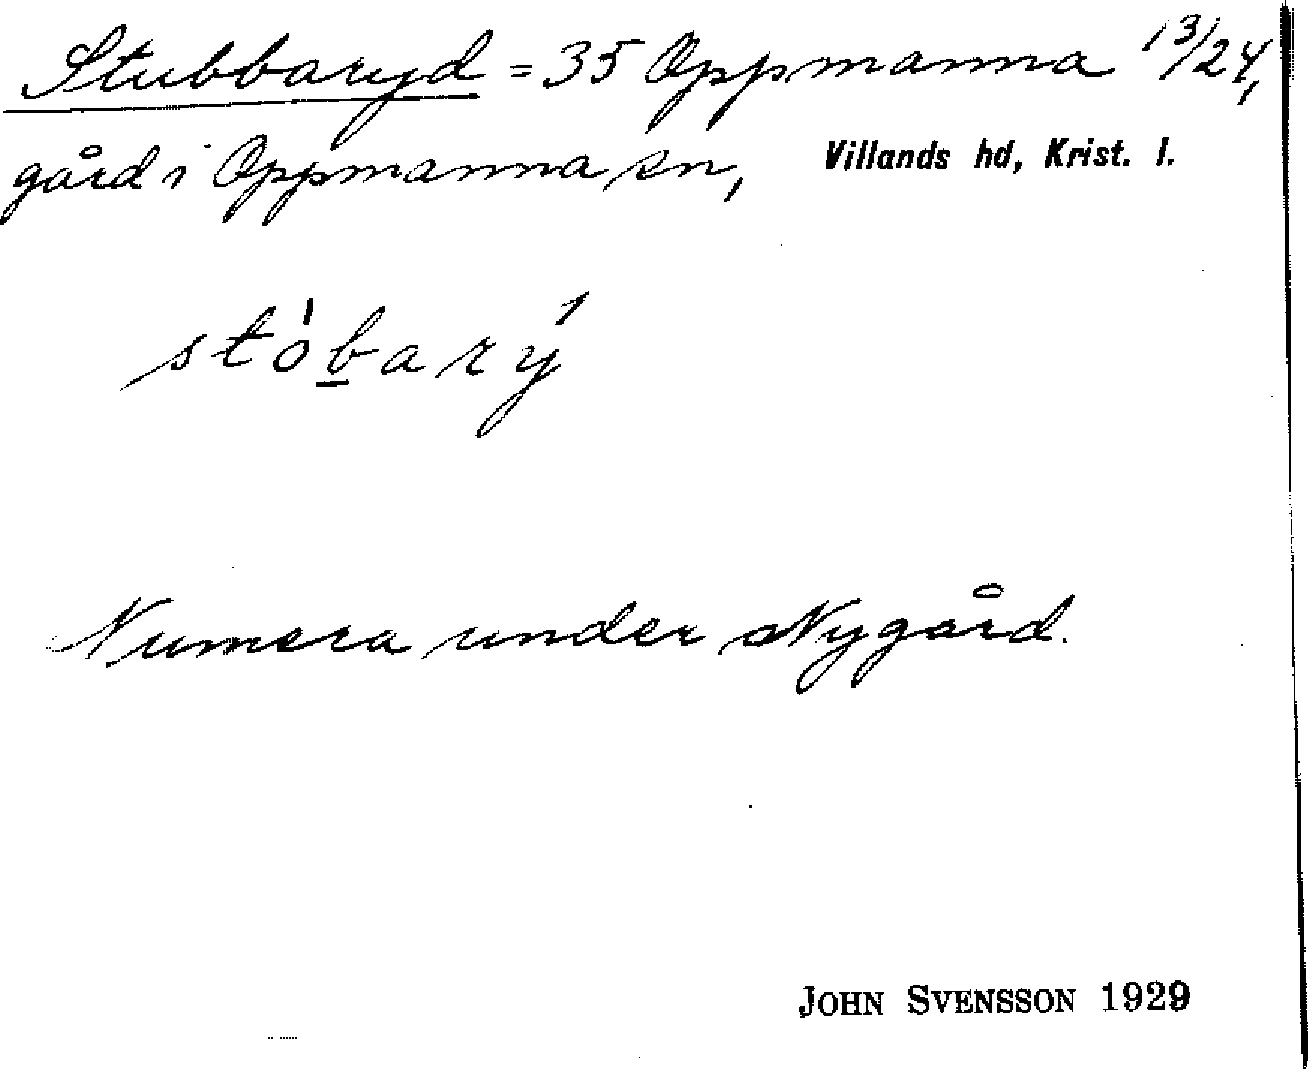 Stubbaryd = 35 Oppmanna 13/24,
gård i Oppmanna sn, Villands hd, Krist. l.
stób̲arý
Numera under Nygård.
JOHN SVENSSON 1929